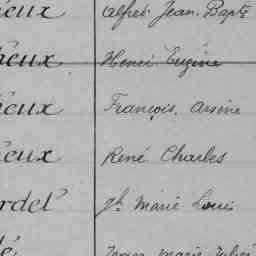 ieux Alfred Jean Bapte
ieux Henri Eugène
ieux François, Arsène
ieux René Charles
rdel Jh Marie Louis
lé Jean Marie Julien